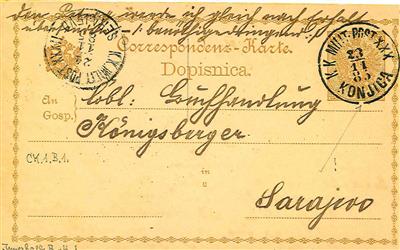 den Betrag werde ich gleich nach Erhalt
Correspondenz-Karte.
Dopisnica.
K.K. MILIT. POST XXX
23
11
85
KONJICA
K.K. MILIT. POST
An
Gosp.
löbl. Buchhandlung
Königsberger
CM.1.B.1.
in
u
Sarajevo